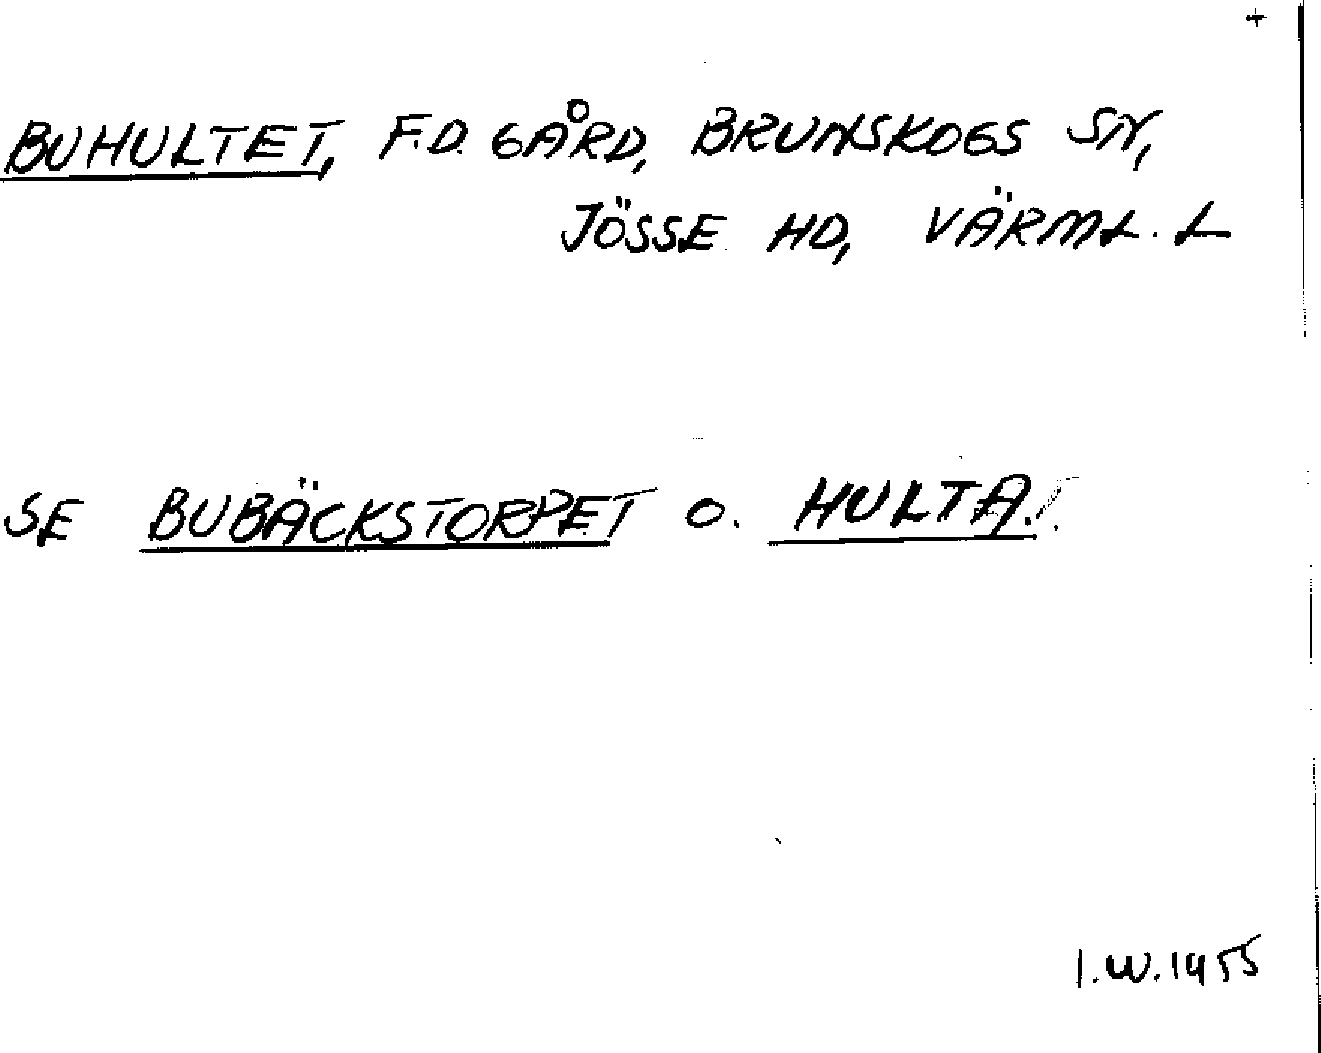 +
BUHULTET, F.D. GÅRD, BRUNSKOGS SN,
JÖSSE HD, VÄRML. L
SE BUBÄCKSTORPET O. HULTA.
I.W. 1955